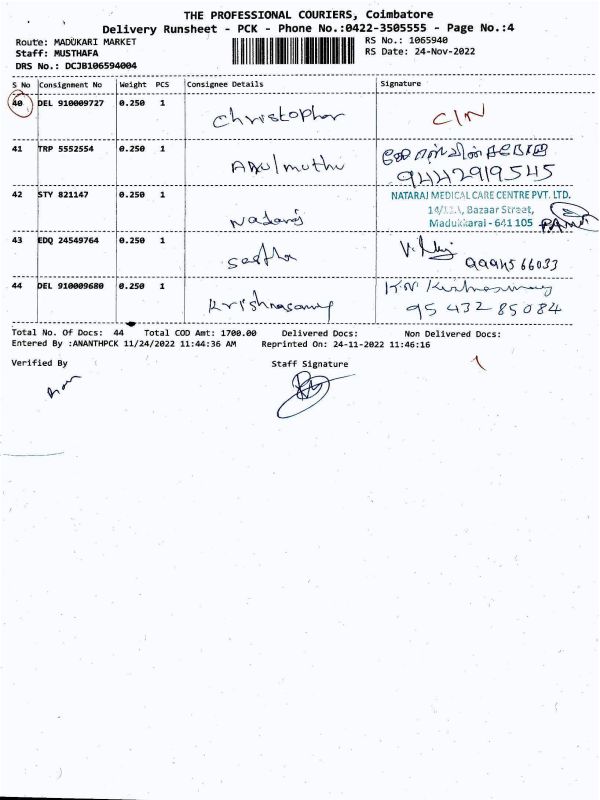 THE PROFESSIONAL COURIERS, Coimbatore
Delivery Runsheet - PCK - Phone No.:0422-3505555 - Page No.:4
Route: MADUKARI MARKET
RS No.: 1065940
Staff: MUSTHAFA
RS Date: 24-Nov-2022
DRS No.: DCJB106594004
S No Consignment No Weight PCS Consignee Details Signature
40 DEL 910009727 0.250 1 Christopher C/N
41 TRP 5552554 0.250 1 Arulmuthu
9442919545
42 STY 821147 0.250 1 Nataraj
NATARAJ MEDICAL CARE CENTRE PVT. LTD.
Bazaar Street,
Madukkarai - 641 105
43 EDQ 24549764 0.250 1
9994566033
44 DEL 910009680 0.250 1 Krishnasamy
95 432 85084
Total No. Of Docs: 44 Total COD Amt: 1700.00 Delivered Docs: Non Delivered Docs:
Entered By :ANANTHPCK 11/24/2022 11:44:36 AM Reprinted On: 24-11-2022 11:46:16
Verified By Staff Signature